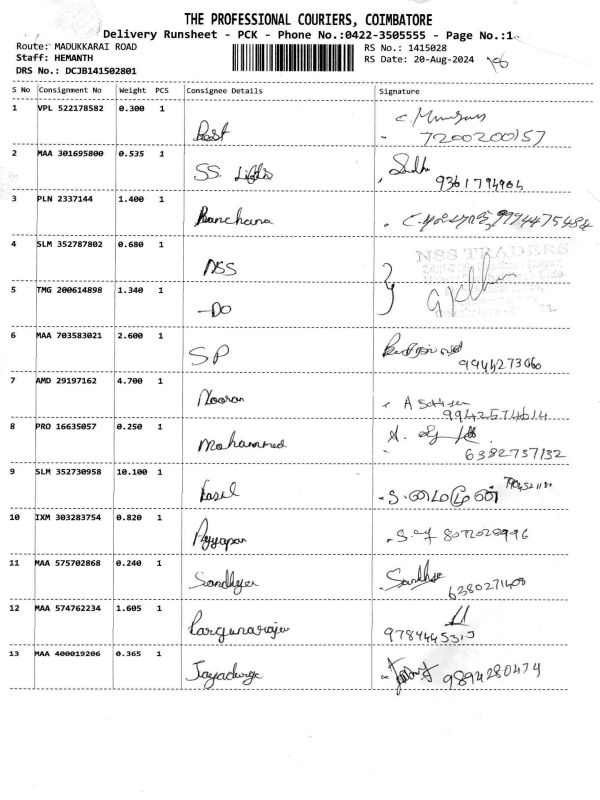 THE PROFESSIONAL COURIERS, COIMBATORE
Delivery Runsheet - PCK - Phone No.:0422-3505555 - Page No.:1
Route: MADUKKARAI ROAD
RS No.: 1415028
Staff: HEMANTH
RS Date: 20-Aug-2024
DRS No.: DCJB141502801
S No Consignment No Weight PCS Consignee Details Signature
1 VPL 522178582 0.300 1 Best
7200200157
2 MAA 301695800 0.535 1 SS. Lights Sudha
9361794964
3 PLN 2337144 1.400 1 Kanchana
4 SLM 352787802 0.680 1 NSS NSS TRADERS
5 TMG 200614898 1.340 1 -DO
6 MAA 703583021 2.600 1 SP
9944273060
7 AMD 29197162 4.700 1 Nooran
9942574614
8 PRO 16635057 0.250 1 Mohammed
6382737132
9 SLM 352730958 10.100 1
10 IXM 303283754 0.820 1 Ayyapan
8072028996
11 MAA 575702868 0.240 1 Sandhya
6380271400
12 MAA 574762234 1.605 1
13 MAA 400019206 0.365 1 Jayadurga 9894280474